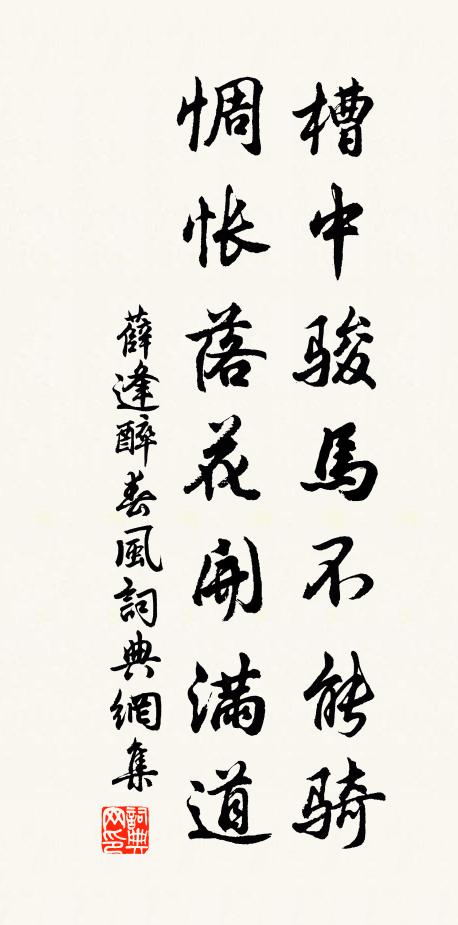 槽中骏馬不能骑
惆怅落花開满道
薛逢醉春風詞典網集
詞典網印